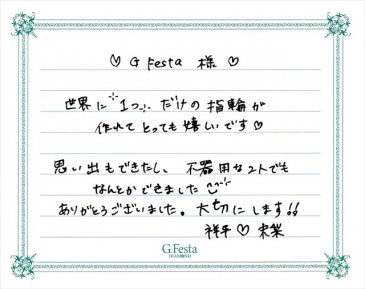 ♡ G Festa 様 ♡
世界に 1つ だけの指輪が
作れてとっても嬉しいです♡
思い出もできたし、不器用な2人でも
なんとかできました
ありがとうございました。大切にします!!
祥平 ♡
G.Festa
DIAMOND